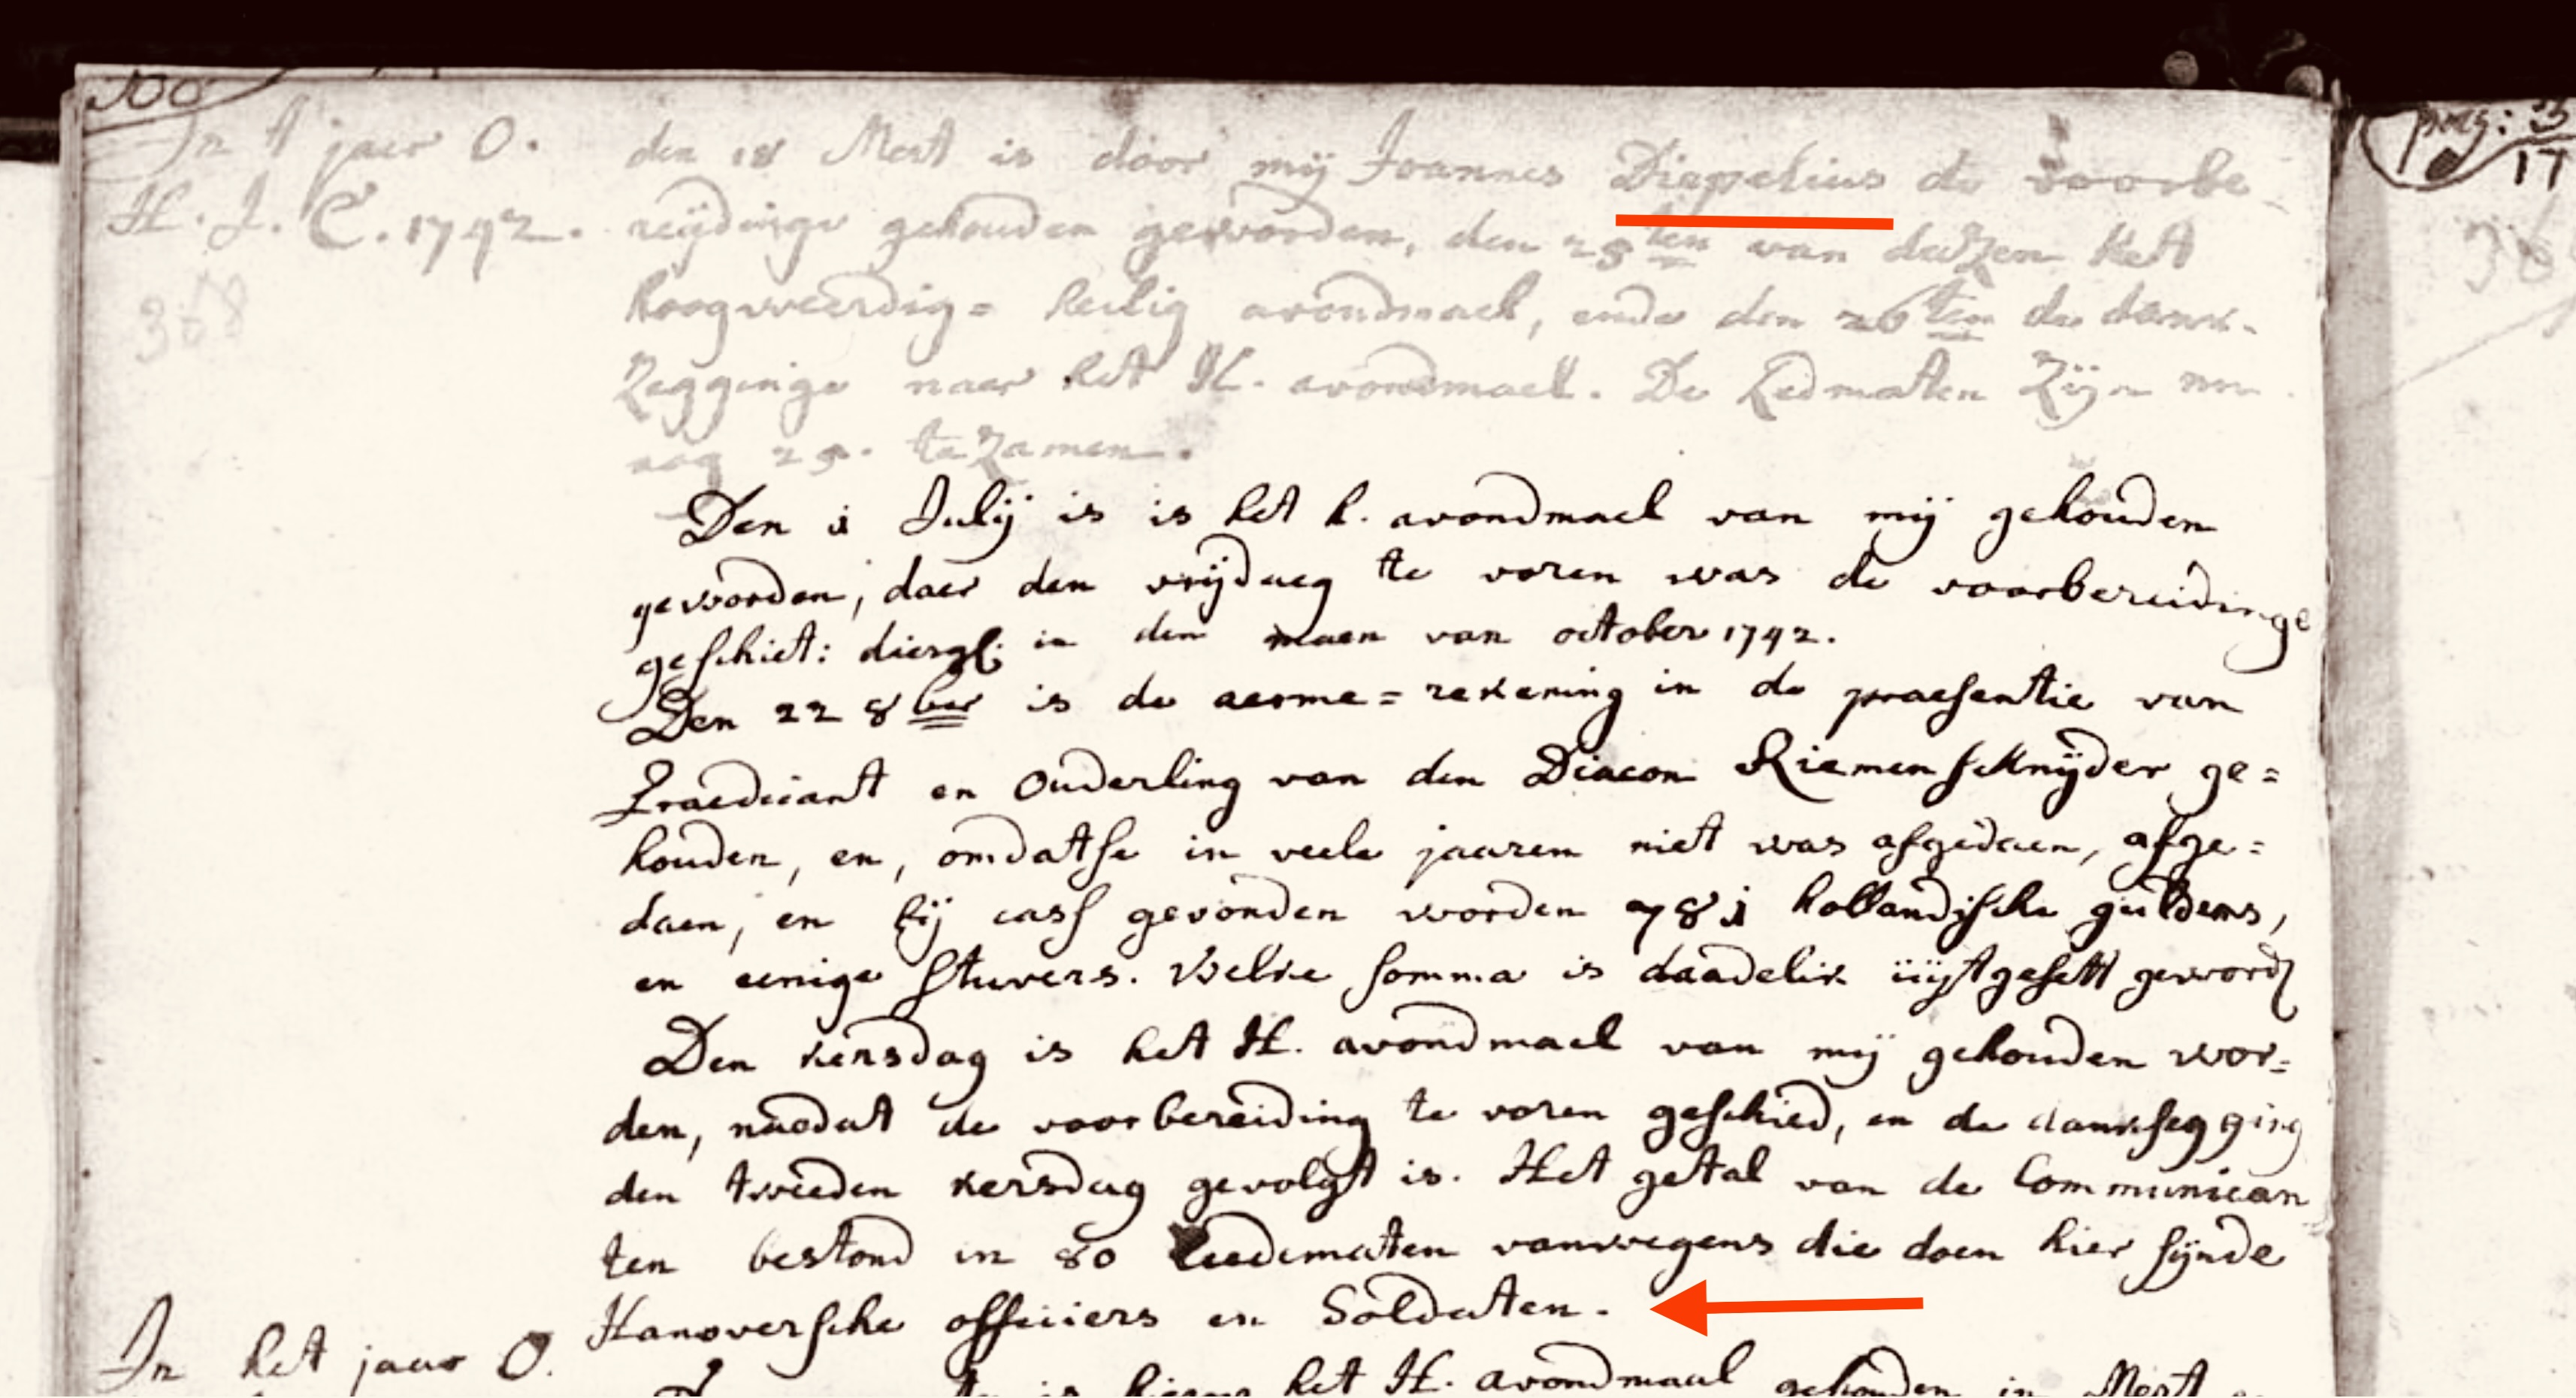 In 't jaer O. den 18 Mert is door mij Joannes Diepelius de voorbe-
H. J. C. 1792. reijdinge gehouden geworden, den 25ten van dezen het
368
hoogweerdig= heilig avondmael, ende den 26ten de dank-
zegginge naer het H. avondmael. De Ledmaten zijn nu
nog 25. te zamen.
Den i Julij is is het h. avondmael van mij gehouden
geworden, daer den vrijdaeg te voren was de voorbereidinge
geschiet: diesgl: in den maen van october 1792.
Den 22 8ber is de aerme=rekening in de praesentie van
Praedicant en Ouderling van den Diacon Riemenschnijder ge=
houden, en, omdatse in veele jaaren niet was afgedaen, afge=
daen, en bij cass gevonden worden 781 hollandische guldens,
en eenige stuvers. Welke somma is daadelik uijtgesett geword
Den kersdag is het H. avondmael van mij gehouden wor=
den, naedat de voorbereiding te voren geschied, en de danksegging
den tweeden kersdag gevolgt is. Het getal van de Communican
ten bestond in 80 Leedematen vanwegens die doen hier sijnde
Hanoversche officiers en Soldaten.
In het jaar O. is het H. avondmaal gehouden in Mert
pag: 
17